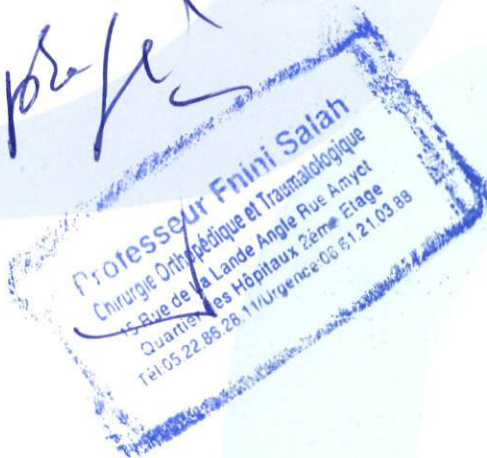 Professeur Fnini Salah
Chirurgie Orthopédique et Traumatologique
15 Rue de La Lande Angle Rue Amyot
Quartier des Hôpitaux 2ème Etage
Tél:05.22.86.28.11/Urgence:06 61.21.03.88